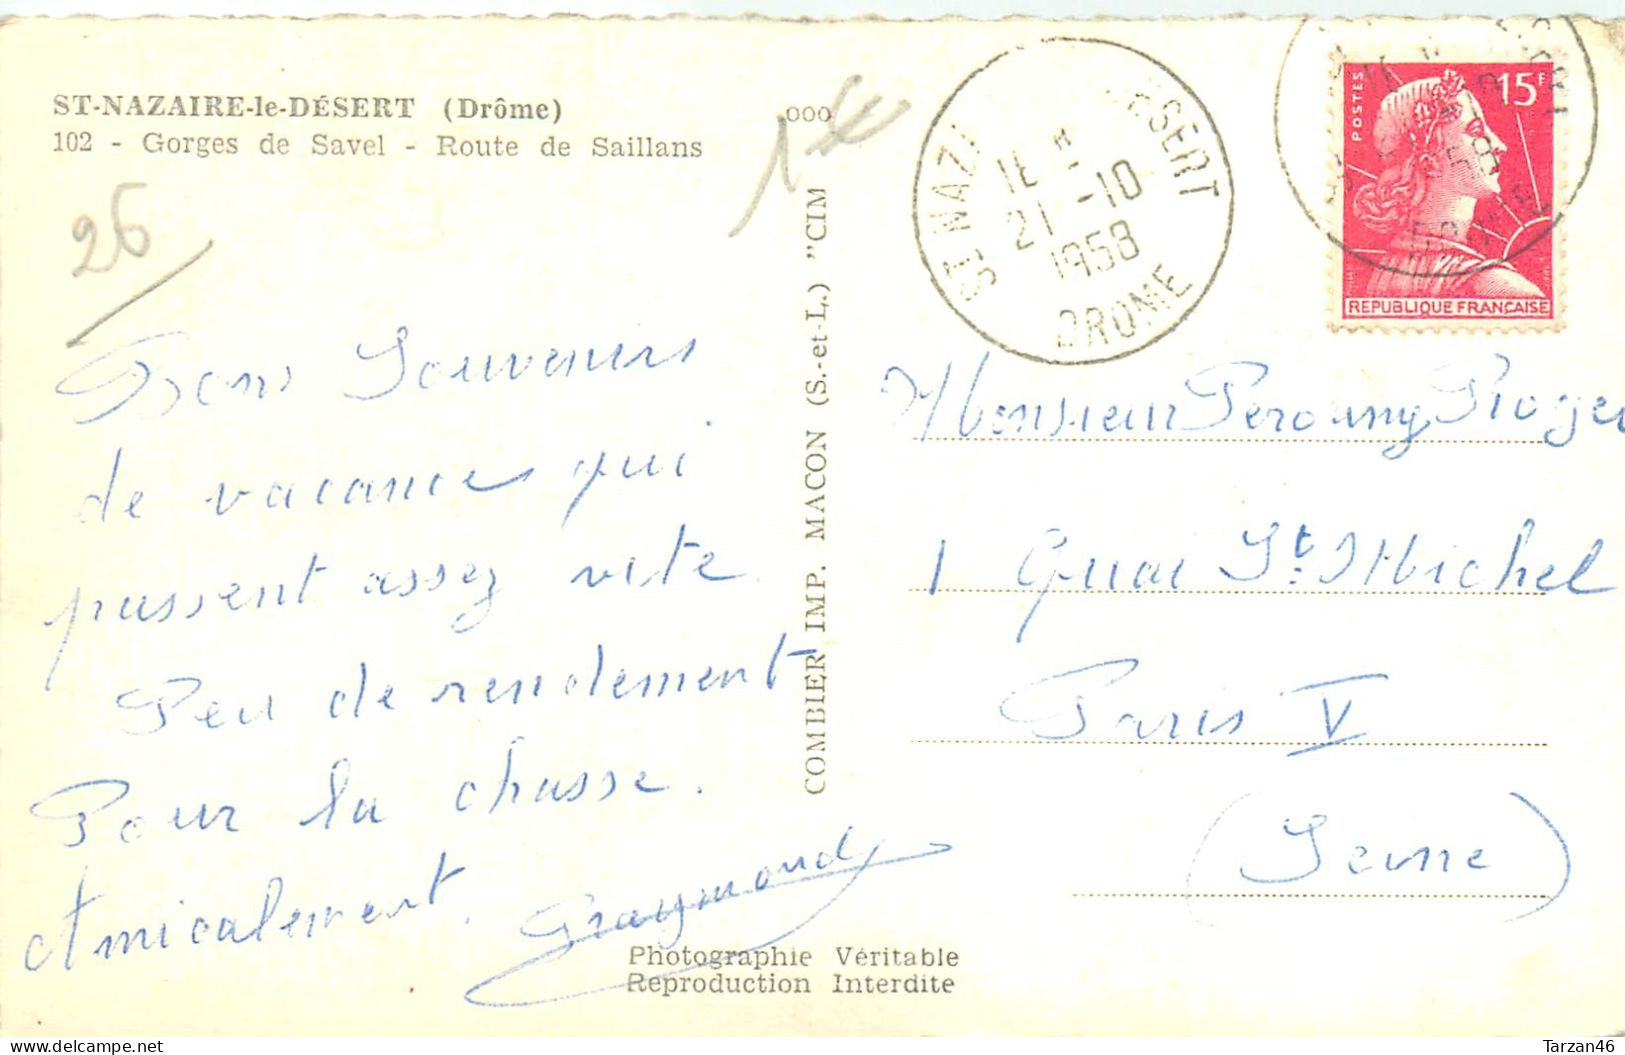 ST-NAZAIRE-le-DÉSERT (Drôme)
102 - Gorges de Savel - Route de Saillans
26
1€
000
Bons Souvenirs
de vacances qui
passent assez vite
Peu de rendement
Pour la chasse.
Amicalement.
Raymond
COMBIER IMP. MACON (S.-et-L.) "CIM
ST NAZ ESERT
21 -10
1958
DROME
POSTES
15F
REPUBLIQUE FRANÇAISE
Monsieur Roger
1 Quai St. Michel
Paris V
(Seine)
Photographie Véritable
Reproduction Interdite
Tarzan46